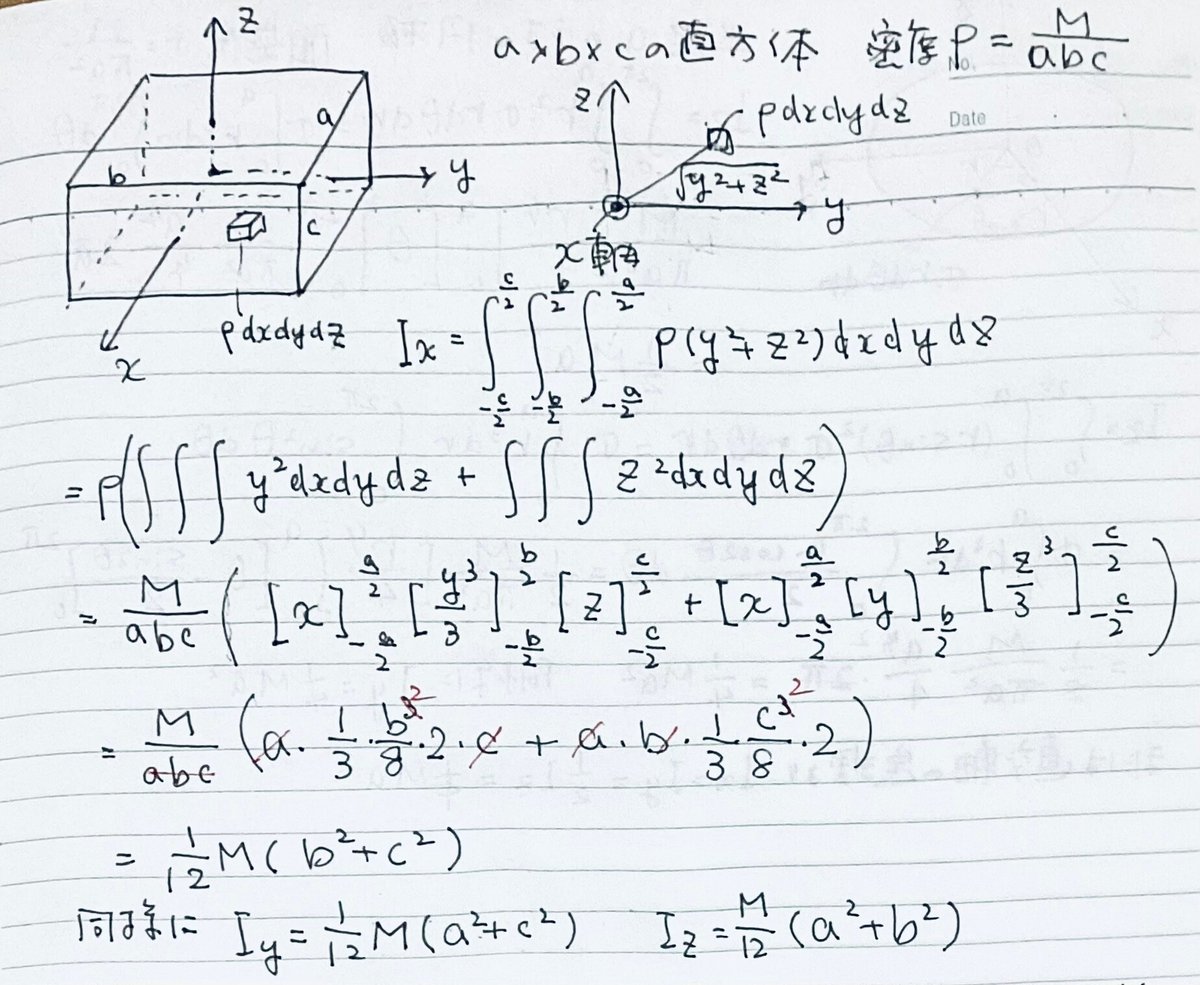 a×b×cの直方体 密度ρ = M/abc
No.
Date
z
a
b
c
y
x
ρdxdydz
z
ρdxdydz
√(y²+z²)
y
x軸
Ix = ∫_{-c/2}^{c/2} ∫_{-b/2}^{b/2} ∫_{-a/2}^{a/2} ρ(y²+z²)dxdydz
= ρ(∫∫∫ y²dxdydz + ∫∫∫ z²dxdydz)
= M/abc ( [x]_{-a/2}^{a/2} [y³/3]_{-b/2}^{b/2} [z]_{-c/2}^{c/2} + [x]_{-a/2}^{a/2} [y]_{-b/2}^{b/2} [z³/3]_{-c/2}^{c/2} )
= M/abc (a・1/3・b³²/8・2・c + a・b・1/3・c³²/8・2)
= 1/12 M(b²+c²)
同様に Iy = 1/12 M(a²+c²) Iz = M/12 (a²+b²)